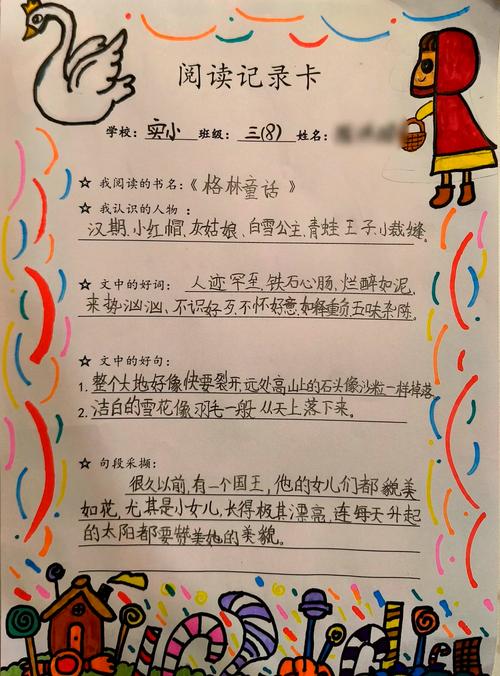 阅读记录卡
学校：实小 班级：三(8) 姓名：
☆ 我阅读的书名：《格林童话》
☆ 我认识的人物：
汉斯、小红帽、灰姑娘、白雪公主、青蛙王子、小裁缝。
☆ 文中的好词： 人迹罕至、铁石心肠、烂醉如泥、
来势汹汹、不识好歹、不怀好意、如释重负、五味杂陈。
☆ 文中的好句：
1. 整个大地好像快要裂开，远处高山上的石头像沙粒一样掉落
2. 洁白的雪花像羽毛一般从天上落下来。
☆ 句段采撷：
很久以前，有一个国王，他的女儿们都貌美
如花，尤其是小女儿，长得极其漂亮，连每天升起
的太阳都要赞美她的美貌。